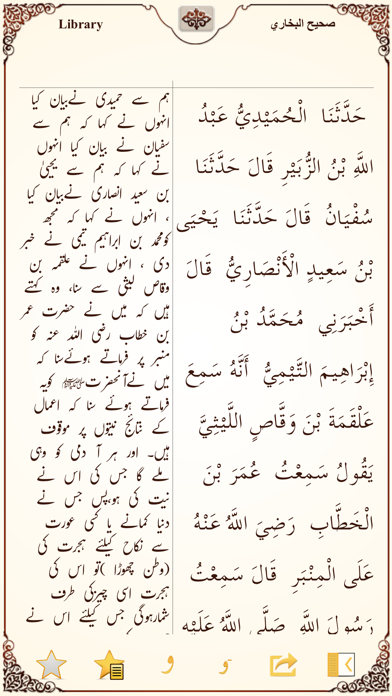 Library
صحيح البخاري
حَدَّثَنَا الْحُمَيْدِيُّ عَبْدُ
اللَّهِ بْنُ الزُّبَيْرِ قَالَ حَدَّثَنَا
سُفْيَانُ قَالَ حَدَّثَنَا يَحْيَى
بْنُ سَعِيدٍ الْأَنْصَارِيُّ قَالَ
أَخْبَرَنِي مُحَمَّدُ بْنُ
إِبْرَاهِيمَ التَّيْمِيُّ أَنَّهُ سَمِعَ
عَلْقَمَةَ بْنَ وَقَّاصٍ اللَّيْثِيَّ
يَقُولُ سَمِعْتُ عُمَرَ بْنَ
الْخَطَّابِ رَضِيَ اللَّهُ عَنْهُ
عَلَى الْمِنْبَرِ قَالَ سَمِعْتُ
رَسُولَ اللَّهِ صَلَّى اللَّهُ عَلَيْهِ
ہم سے حمیدی نےبیان کیا
انہوں نے کہا کہ ہم سے
سفیان نے بیان کیا انہوں
نے کہا کہ ہم سے یحییٰ
بن سعید انصاری نےبیان کیا
، انہوں نے کہا کہ مجھ
کومحمد بن ابراہیم تیمی نے خبر
دی ، انہوں نے علقمہ بن
وقاص لیثی سے سنا، وہ کہتے
ہیں کہ میں نے حضرت عمر
بن خطاب رضی اللہ عنہ کو
منبر پر فرماتے ہوئےسنا کہ
میں نےآنحضرتﷺ کویہ
فرماتے ہوئے سنا کہ اعمال
کے نتائج نیتوں پر موقوف
ہیں۔ اور ہر آ دمی کو وہی
ملے گا جس کی اس نے
نیت کی ہو،پس جس نے
دنیا کمانے یا کسی عورت
سے نکاح کیلئے ہجرت کی
(وطن چھوڑا )تو اس کی
ہجرت اسی چیزکی طرف
شمارہوگی جس کیلئے اس نے
و